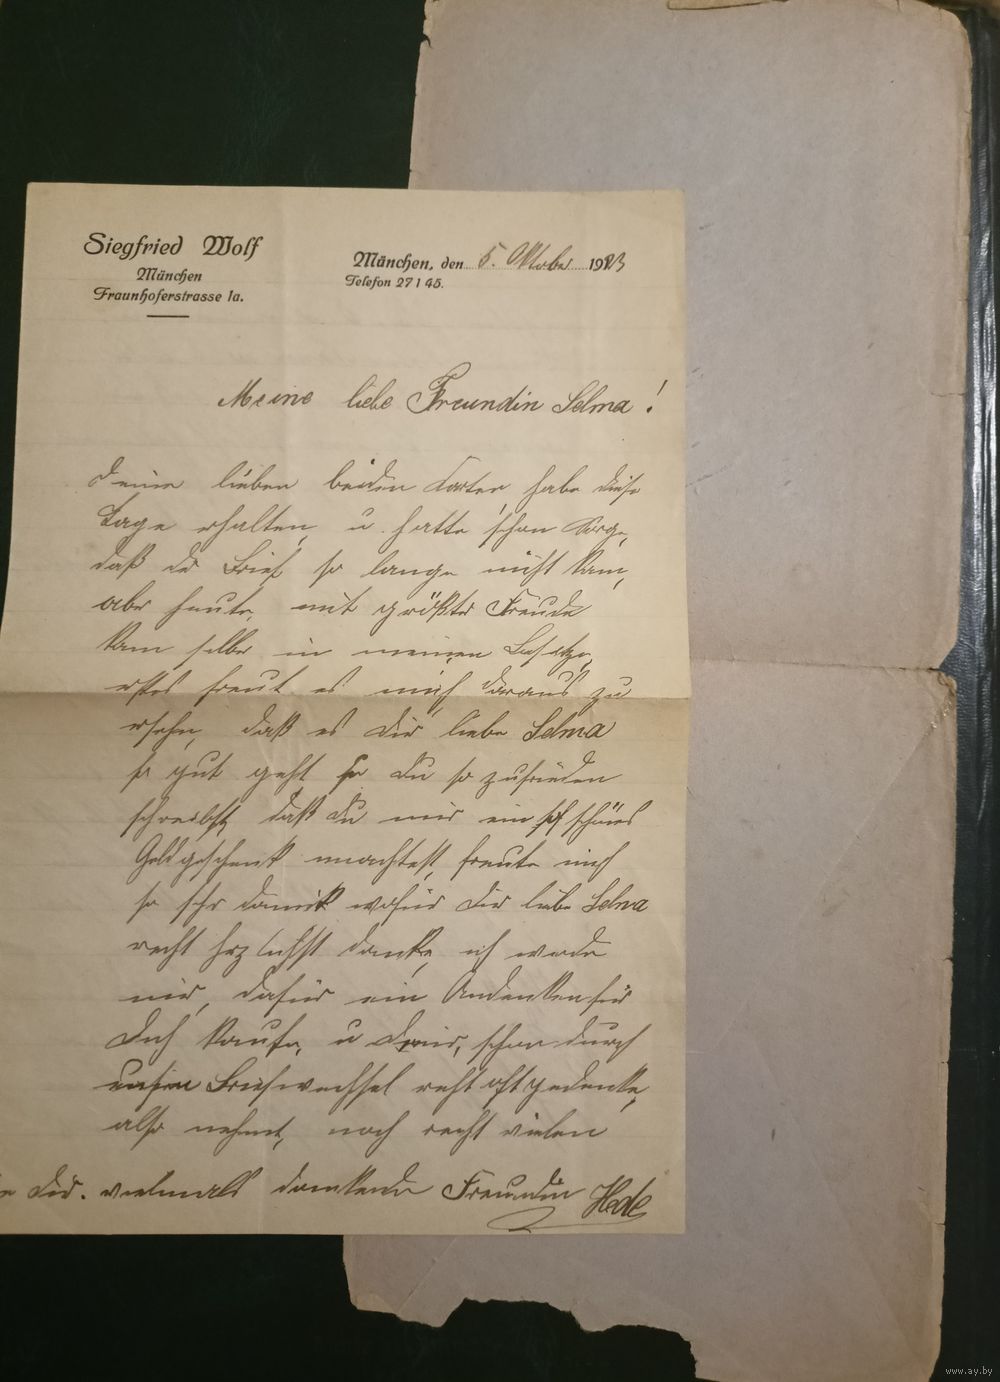 Siegfried Wolf
München
Fraunhoferstrasse 1a.
München, den 5. Oktober 1923
Telefon 27145.
Meine liebe Freundin Selma!
Deine lieben beiden Karten habe diese
Tage erhalten, u. hatte schon Sorge,
daß der Brief so lange nicht kam,
aber heute, mit größter Freude
kam selber in meinen
erstes freut es mich daraus zu
ersehen, daß es Dir liebe Selma
so gut geht Du so zufrieden
schreibst, daß Du mir ein schönes
Geldgeschenk machtest, freute mich
so sehr damit wofür Dir liebe Selma
recht herzlichst danke, ich werde
mir, dafür ein Andenken für
Dich kaufen, u schon durch
unsern Briefwechsel recht oft gedenke,
also nehmt, noch recht vielen
Dir. vielmals dankende Freundin Hede
www.ay.by